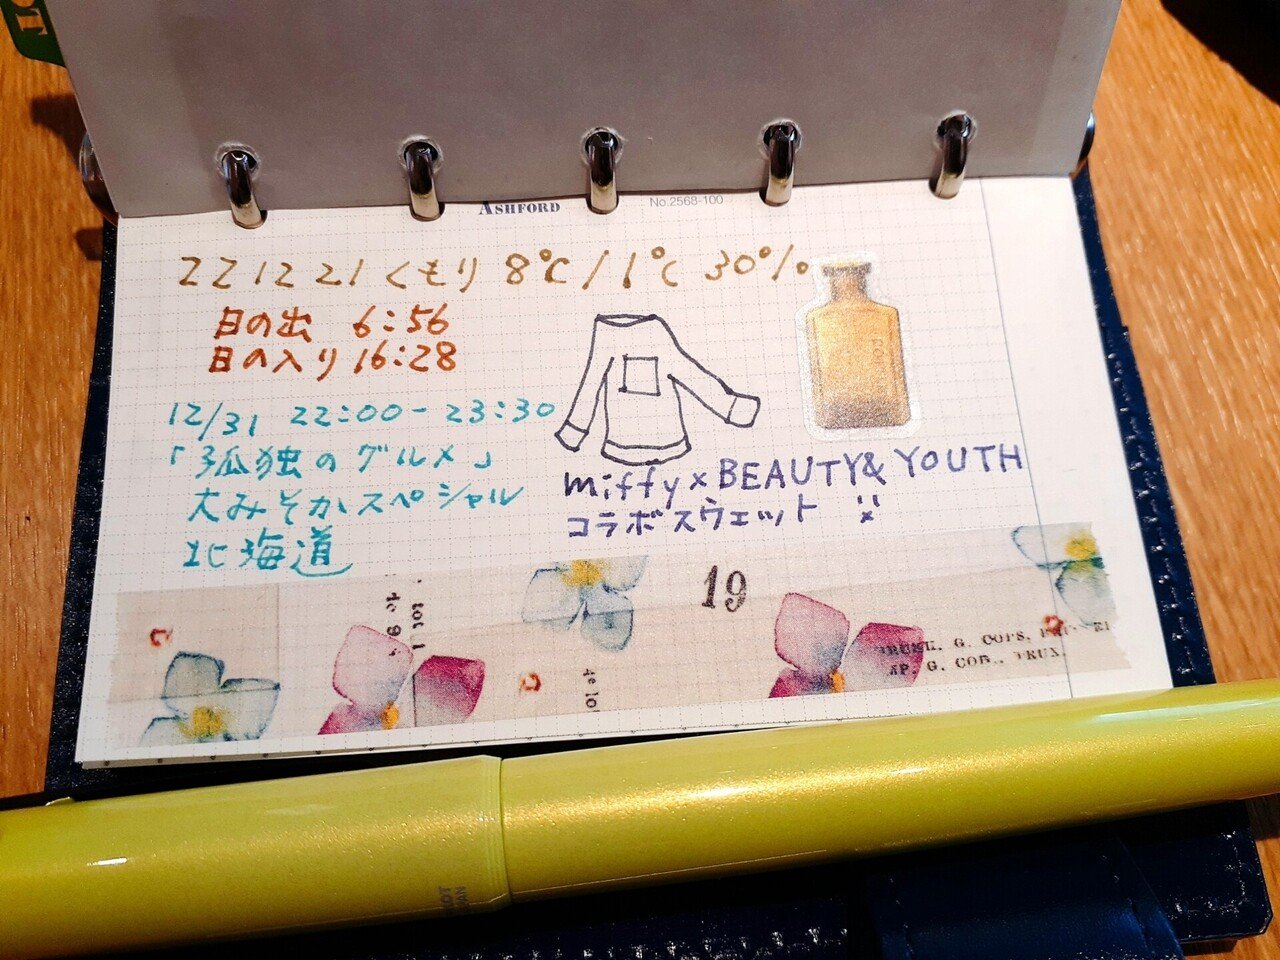 ASHFORD
No.2568-100
22 12 21 くもり 8℃/1℃ 30%
日の出 6:56
日の入り 16:28
12/31 22:00-23:30
「孤独のグルメ」
大みそかスペシャル
北海道
miffy×BEAUTY& YOUTH
コラボスウェット
19